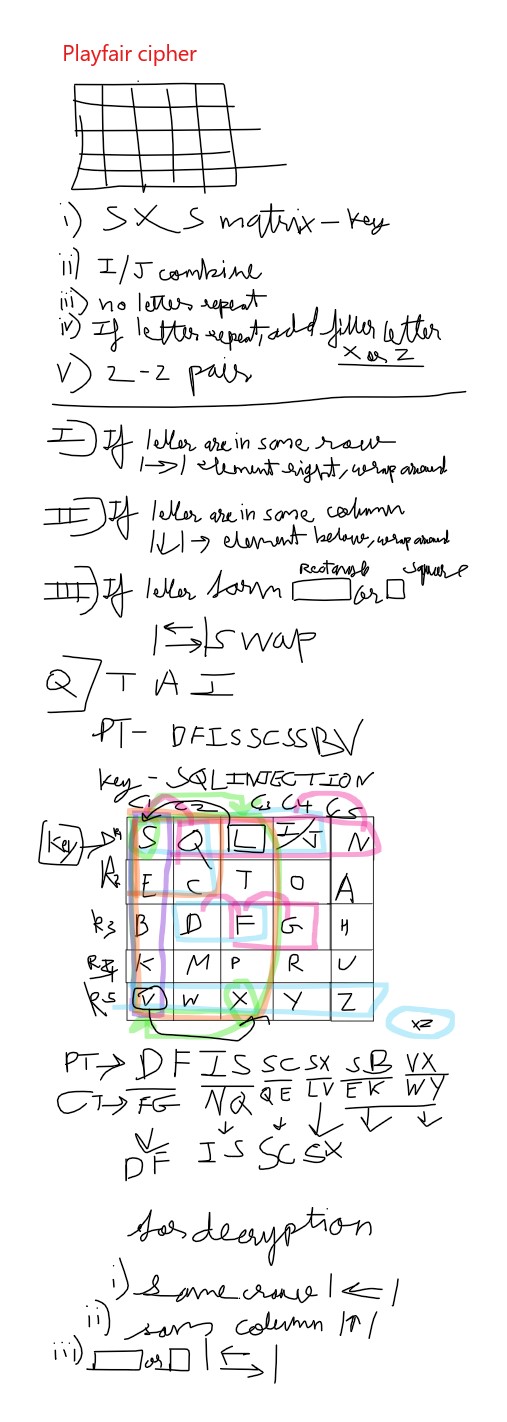 Playfair cipher
i) 5 X 5 matrix - key
ii) I/J combine
iii) no letter repeat
iv) If letter repeat, add filler letter
X or Z
v) 2-2 pairs
I) If letter are in same row
|→| element right, wrap around
II) If letter are in same column
|↓| → element below, wrap around
Rectangle Square
III) If letter form or
|⇄| swap
Q T A I
PT- DFISSCSSBV
Key - SQLINJECTION
C1 C2 C3 C4 C5
Key → R1 S Q L I/J N
R2 E C T O A
R3 B D F G H
R4 K M P R U
R5 V W X Y Z
XZ
PT → DF IS SC SX SB VX
CT → FG NQ QE LV EK WY
DF IS SC SX
for decryption
i) same |←|
ii) sam column |↑|
iii) or |⇄|